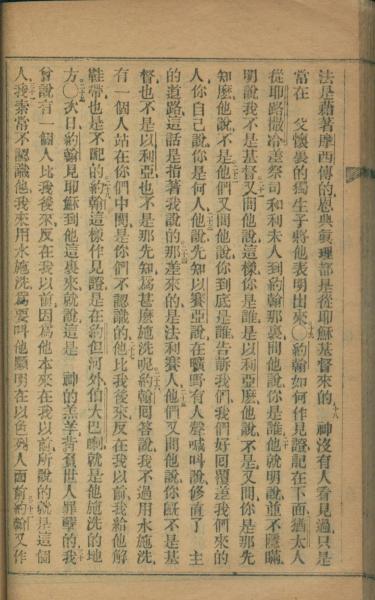 法是藉著摩西傳的恩典真理都是從耶穌基督來的 十八 神沒有人看見過只是
常在 父懷裏的獨生子將他表明出來○十九約翰如何作見證記在下面猶太人
從耶路撒冷差祭司和利未人到約翰那裏問他說你是誰他就明說並不隱瞞
明說我不是基督又問他說這樣你是誰是以利亞麼他說不是又問你是那先
知麼他說不是他們又問他說你到底是誰告訴我們我們好回覆差我們來的
人你自己說你是何人他說先知以賽亞說在曠野有人聲喊叫說修直了 主
的道路這話是指著我說的那差來的是法利賽人他們又問他說你既不是基
督也不是以利亞也不是那先知為甚麼施洗呢約翰回答說我不過用水施洗
有一個人站在你們中間是你們不認識的他比我後來反在我以前我給他解
鞋帶也是不配的約翰這樣作見證是在約但河外伯大巴喇就是他施洗的地
方○次日約翰見耶穌到他這裏來就說這是 神的羔羊背負世人罪孽的我
曾說有一個人比我後來反在我以前因為他本來在我以前所說的就是這個
人我素常不認識他我來用水施洗為要叫他顯明在以色列人面前約翰又作